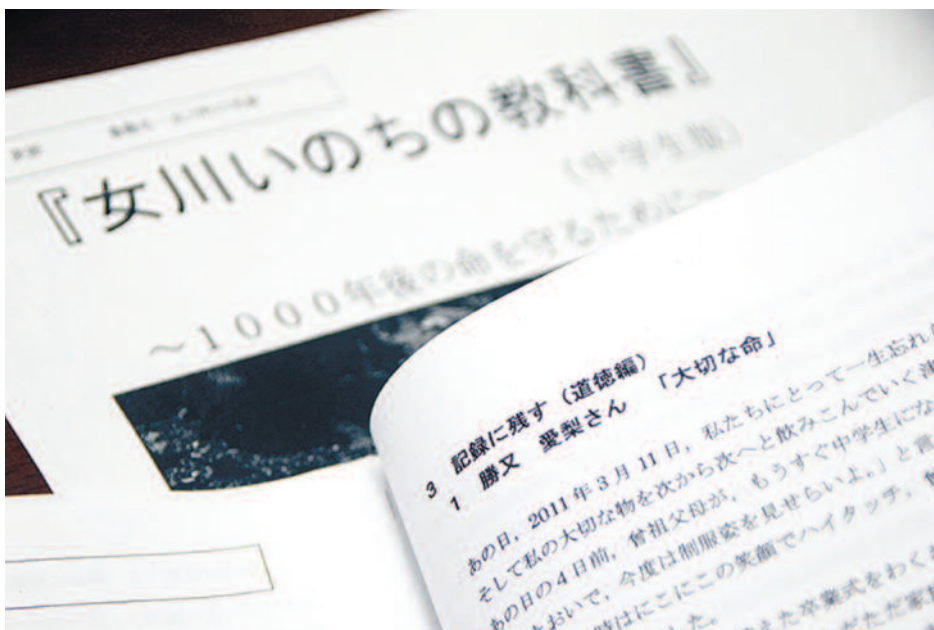 『女川いのちの教科書』
(中学生版)
~1000年後の命を守るために~
3 記録に残す(道徳編)
1 勝又 愛梨さん 「大切な命」
あの日,2011年3月11日,私たちにとって一生忘れ
そして私の大切な物を次から次へと飲みこんでいく
あの日の4日前,曾祖父母が,もうすぐ中学生にな
おいで,今度は制服姿を見せらいよ。」と言
時はにこにこの笑顔でハイタッチ,
した。
た卒業式をわく
ただ家